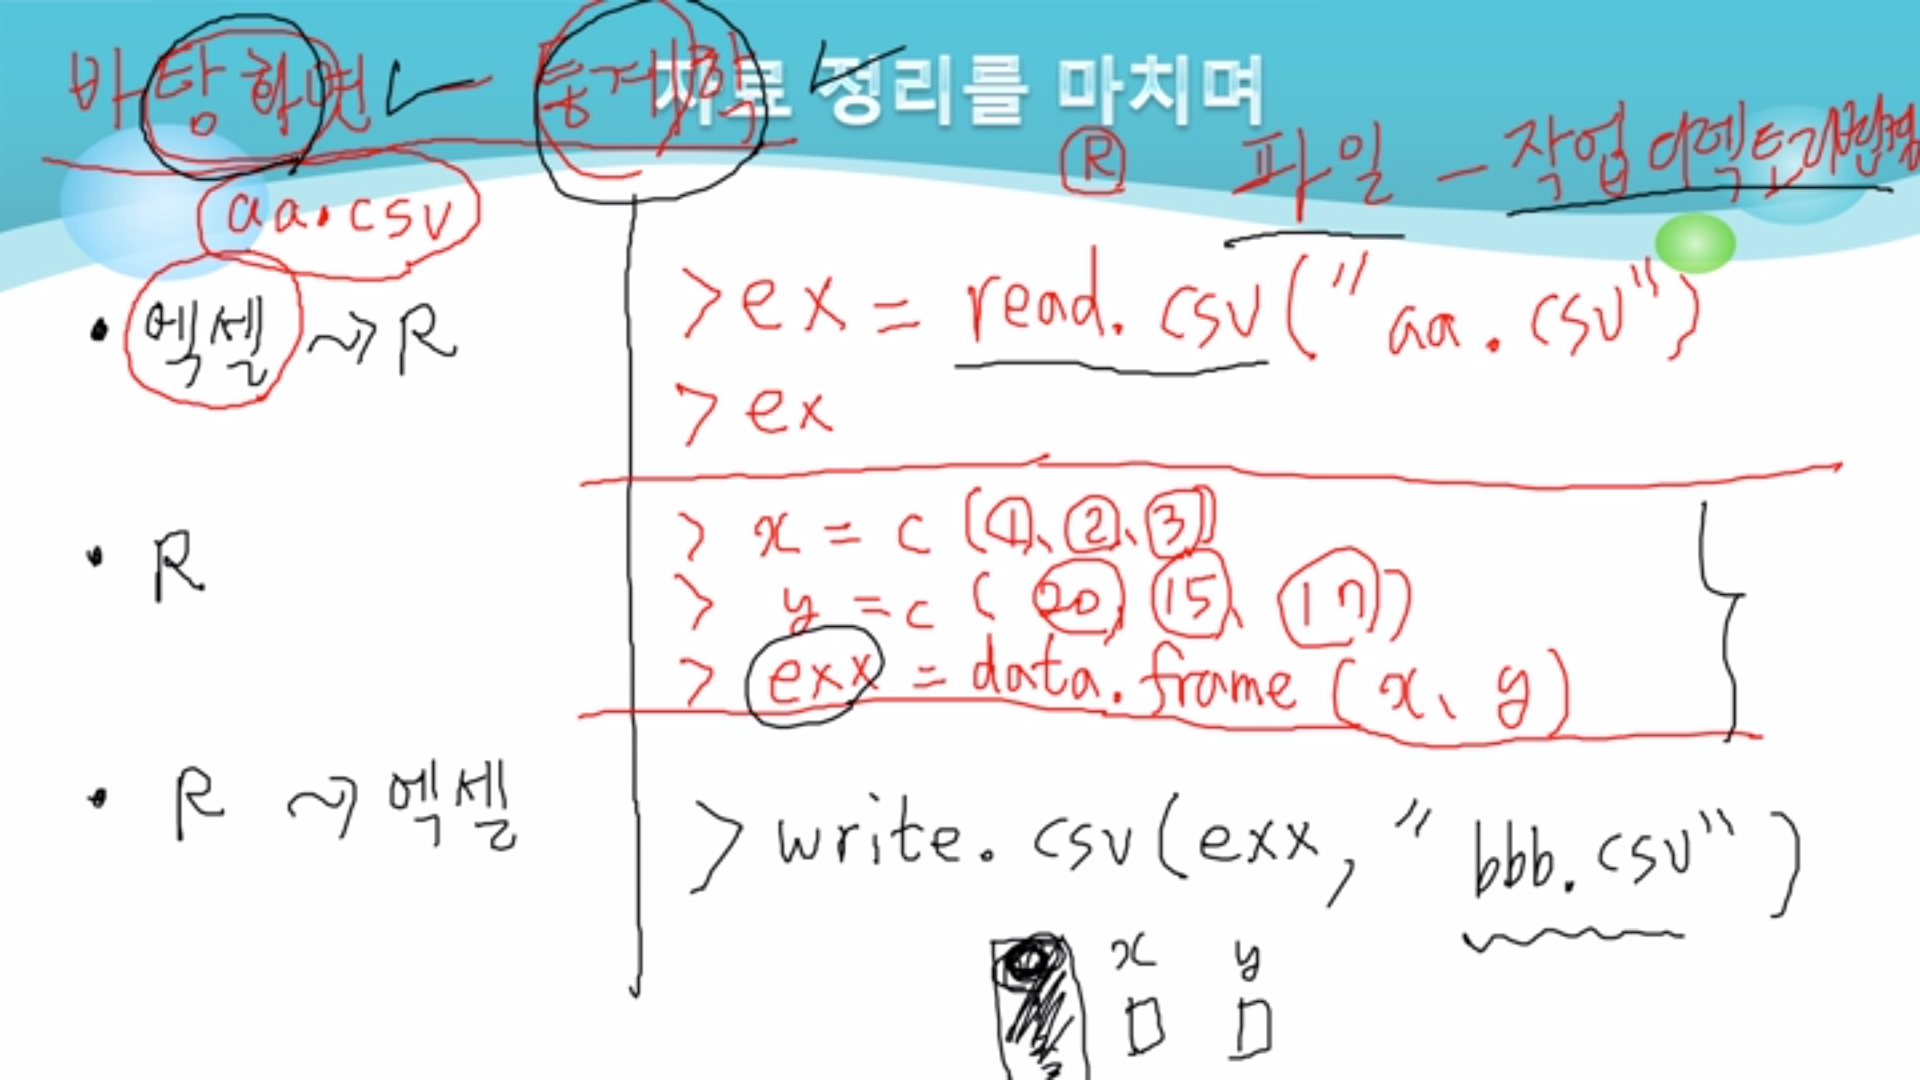 자료 정리를 마치며
바탕화면 - 통계학
R 파일 - 작업 디렉토리변경
aa.csv
• 엑셀 ~> R
>ex = read.csv("aa.csv")
>ex
• R
> x = c(1, 2, 3)
> y = c(20, 15, 17)
> exx = data.frame(x, y)
• R ~> 엑셀
>write.csv(exx, "bbb.csv")
x y